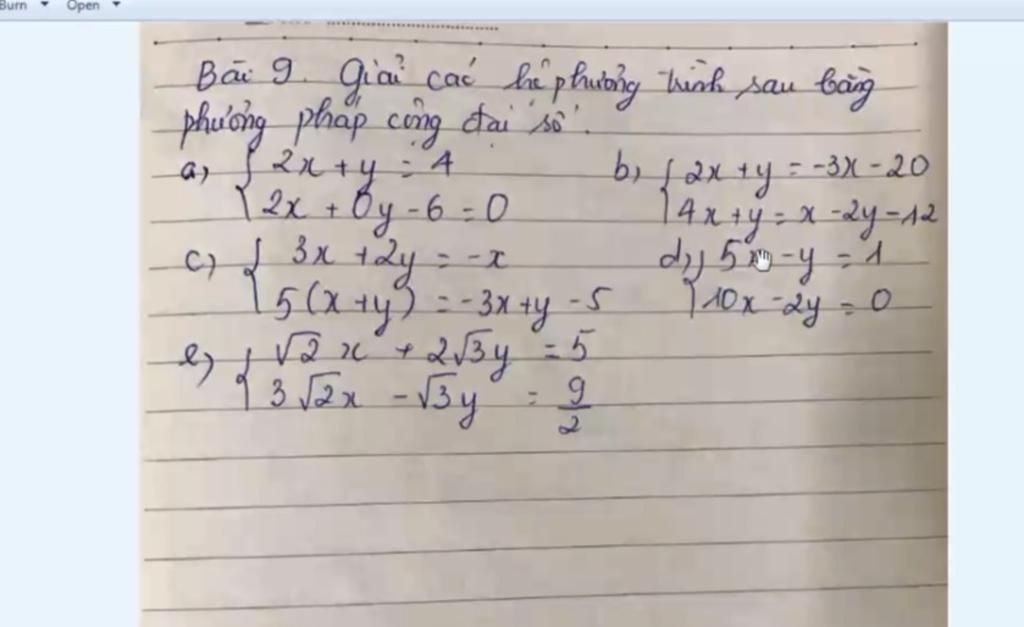 Burn Open
Bài 9. Giải các hệ phương trình sau bằng
phương pháp cộng đại số.
a) { 2x + y = 4
2x + 0y - 6 = 0
b) { 2x + y = -3x - 20
4x + y = x - 2y - 12
c) { 3x + 2y = -x
5(x + y) = -3x + y - 5
d) { 5x - y = 1
10x - 2y = 0
e) { √2 x + 2√3y = 5
3√2x - √3y = 9/2